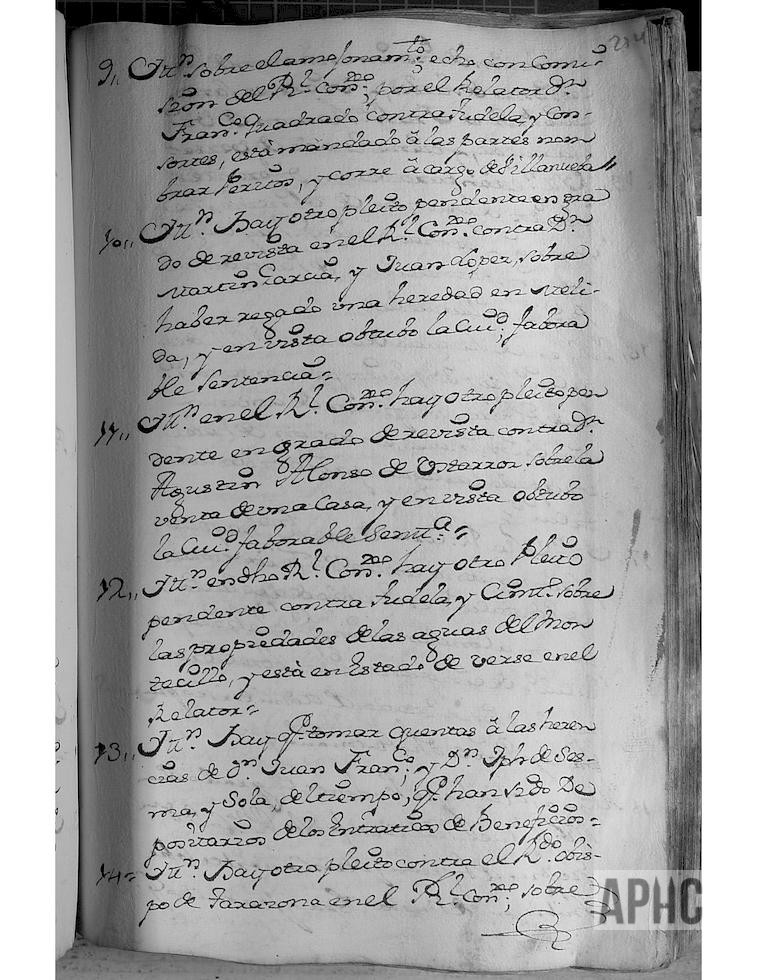 214
9,, Ittn. sobre el amojonamto. echo con Comi-
sion del Rl. Conso., por el Relator Dn.
Franco. Quadrado contra Tudela, y Con-
sortes, està mandado â las partes nom
brar Peritos, y corre â cargo de Villanueba
10,, Ittn. Hay otro pleito pendente en gra
do de revista en el Rl. Conso. contra Dn.
Martin Garcia, y Juan Lopez, sobre
haber regado una heredad en Meli-
da, y en vista obtubo la Ciud. fabora
ble sentencia=
11,, Ittn. en el Rl. Conso. hay otro pleito pen
dente en grado de revista contra Dn.
Agustin Alonso de sobre la
venta de una Casa, y en vista obtubo
la Ciud. faborable Sentª.=
12,, Ittn. en dho Rl. Conso. hay otro Pleito
pendente contra Tudela, y Cintº. sobre
las propriedades de las aguas del Mon
tecillo, y està en Estado de verse en el
Relator=
13,, Ittn. Hay q. tomar quentas â las heren
cias de Dn. Juan Franco., y Dn. Jph de Ses-
ma, y Sola, del tiempo, q. han sido De
positarios de los Entraticos de Beneficios=
14= Ittn. Hay otro pleito contra el Rdo. obis-
po de Tarazona en el Rl. Conso., sobre
APHC